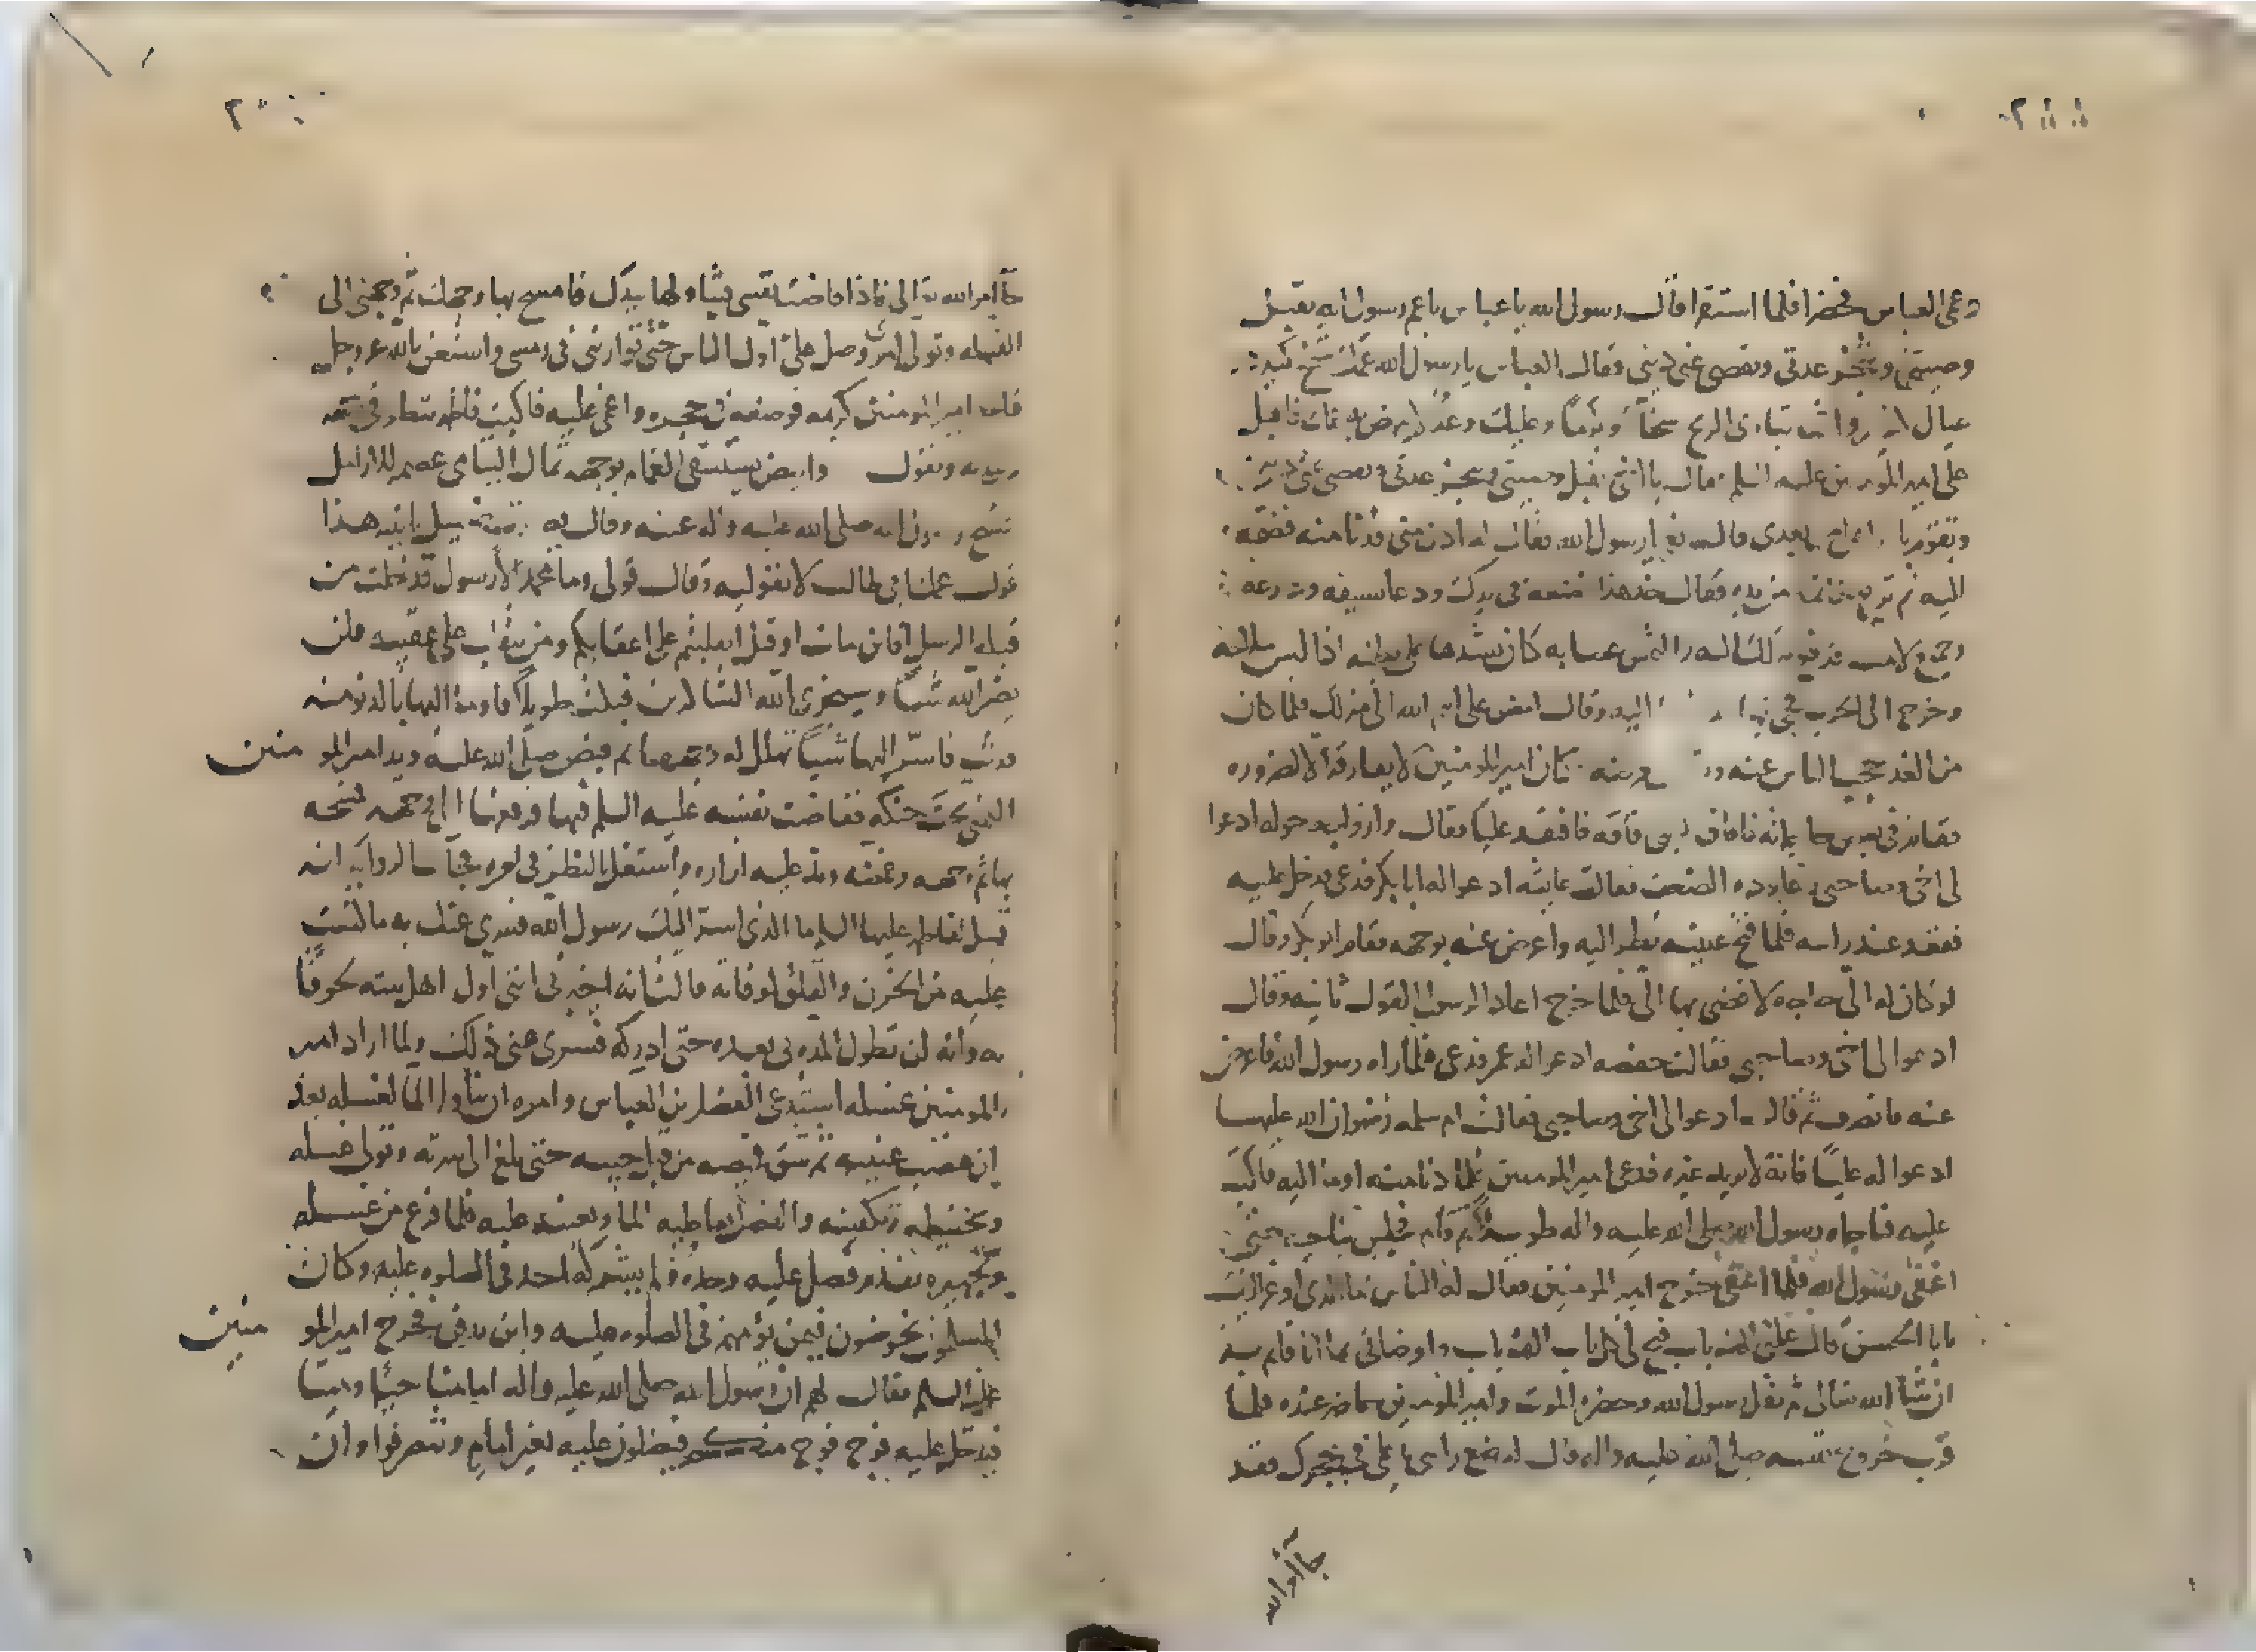 دعى العباس فحضرا فلما استقرا قال رسول الله يا عباس يا عم رسول الله تقبل
وصيتى وتنجز عدتى وتقضى عنى دينى فقال العباس يا رسول الله عمك شيخ كبير
عيال تبارى الريح سخآ وكرما وعليك وعد لا ينهض به عمك فاقبل
على امير المؤمنين عليه السلم فقال يا اخى تقبل وصيتى وتنجز عدتى وتقضى عنى دينى
وتقوم بامر اهلى بعدى قال نعم يا رسول الله فقال له ادن منى فدنا منه فضمه
اليه ثم نزع خاتمه من يده فقال خذ هذا فضعه فى يدك ودعا بسيفه ودرعه
وجميع لامته فدفع ذلك اليه والتمس عصابه كان يشدها على بطنه اذا لبس سلاحه
وخرج الى الحرب فجئ بها اليه وقال امض على اسم الله الى منزلك فلما كان
من الغد حجب الناس عنه وكان امير المؤمنين لا يفارقه الا لضروره
فقام فى بعض فافاق افاقه فافتقد عليا فقال وازواجه حوله ادعوا
لى اخى وصاحبى وعاوده الضعف فقالت عايشه ادعوا له ابا بكر فدعى فدخل عليه
فقعد عند راسه فلما فتح عينيه نظر اليه واعرض عنه بوجهه فقام ابو بكر وقال
لو كان له الى حاجه لافضى بها الى فلما خرج اعاد الرسول القول ثانيه وقال
ادعوا لى اخى وصاحبى فقالت حفصه ادعوا له عمر فدعى فلما راه رسول الله فاعرض
عنه فانصرف ثم قال ادعوا لى اخى وصاحبى فقالت ام سلمه رضوان الله عليها
ادعوا له عليا فانه لا يريد غيره فدعى امير المومنين فلما دنا منه اومأ اليه فاكب
عليه فناجاه رسول الله صلى الله عليه واله طويلا ثم قام فجلس ناحيه حتى
اغفى رسول الله فلما اغفى خرج امير المومنين فقال له الناس ما الذى اوعز اليك
يا با الحسن قال علمنى الف باب فتح لى كل باب الف باب واوصانى بما انا قايم به
ان شآ الله تعالى ثم ثقل رسول الله وحضره الموت وامير المومنين حاضر عنده فلما
قرب خروج نفسه صلى الله عليه واله قال له ضع راسى يا على فى حجرك فقد
جآ امر الله
جآ امر الله تعالى فاذا فاضت نفسى فتناولها بيدك فامسح بها وجهك ثم وجهنى الى
القبله وتولى امرى وصل على اول الناس حتى توارينى فى رمسى واستعن بالله عز وجل
فاخذ امير المومنين كريمه فوضعه فى حجره واغمى عليه فاكبت فاطمه تنظر فى وجهه
وتندبه وتقول وابيض يستسقى الغمام بوجهه ثمال اليتامى عصمه للارامل
ففتح رسول الله صلى الله عليه واله عينه وقال يا بنيه هذا
قول عمك ابى طالب لا تقوليه وقال قولى وما محمد الا رسول قد خلت من
قبله الرسل افان مات او قتل انقلبتم على اعقابكم ومن ينقلب على عقبيه فلن
يضر الله شيئا وسيجزى الله الشاكرين فبكت طويلا فاومأ اليها بالدنو منه
فدنت فاسر اليها شيئا تهلل له وجهها ثم قبض صلى الله عليه ويد امير المو منين
اليمنى تحت حنكه ففاضت نفسه عليه السلم فيها فرفعها الى وجهه فمسحه
بها ثم وجهه وغمضه ومد عليه ازاره واشتغل بالنظر فى امره فجآت الروايه انه
قيل لفاطمه عليها السلم ما الذى اسر اليك رسول الله فسرى عنك به ما كنت
عليه من الحزن والقلق لوفاته قالت انه اخبرنى اننى اول اهل بيته لحوقا
به وانه لن تطول المده بى بعده حتى ادركه فسرى عنى ذلك ولما اراد امير
المومنين غسله استدعى الفضل بن العباس وامره ان يناوله المآ لغسله بعد
ان عصب عينيه ثم شق قميصه من قبل جيبه حتى بلغ الى سرته وتولى غسله
وتحنيطه وتكفينه والفضل يعاطيه المآ ويعينه عليه فلما فرغ من غسله
وتجهيزه تقدم فصلى عليه وحده ولم يشركه احد فى الصلوه عليه وكان
المسلمون يخوضون فيمن يؤمهم فى الصلوه عليه واين يدفن فخرج امير المو منين
عليه السلم فقال لهم ان رسول الله صلى الله عليه واله امامنا حيا وميتا
فيدخل عليه فوج فوج منكم فيصلون عليه بغير امام وينصرفوا وان